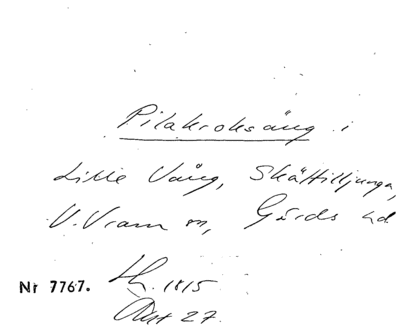 Pilakroksäng i
Lille Vång, Skättilljunga,
V. Vram sn, Gärds hd.
Nr 7767.
1815
27.